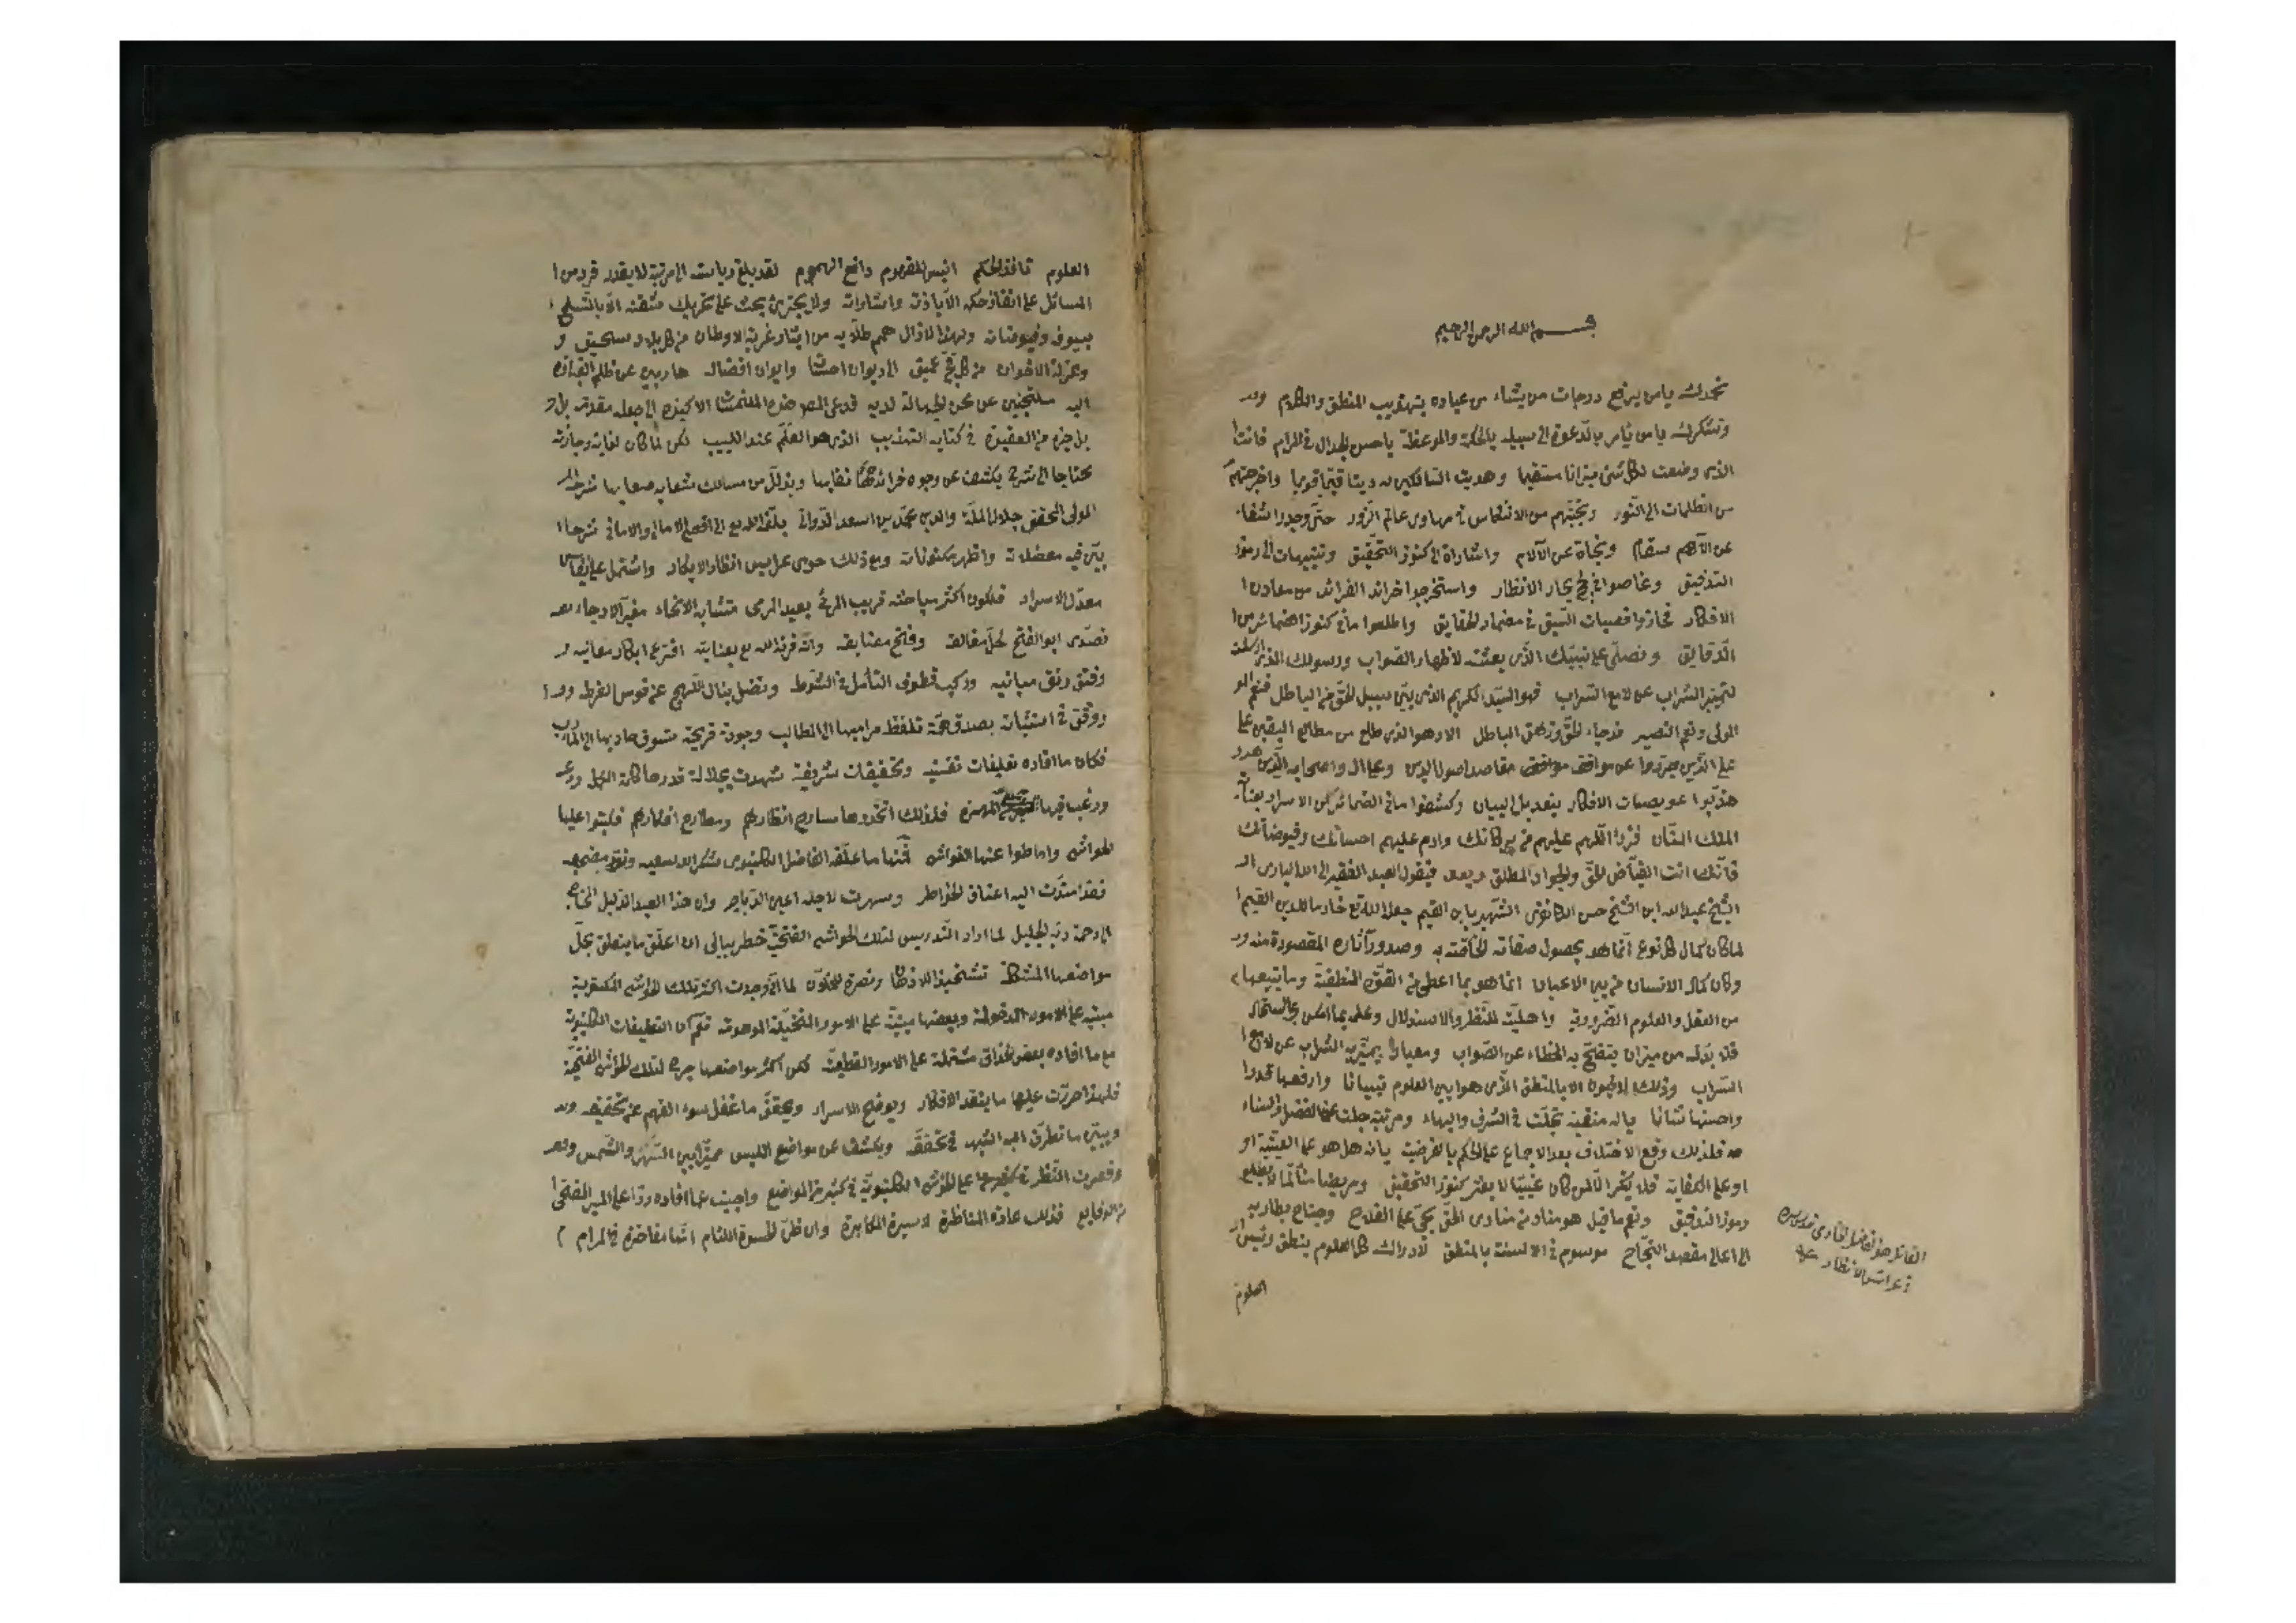 بسم الله الرحمن الرحيم
نحمدك يا من يرفع درجات من يشاء من عباده بتهذيب المنطق والكلام
ونشكرك يا من يأمر بالدعوة الى سبيله بالحكمة والموعظة يا حسن الجدال في المرام فانت
الذي وضعت لكل شئ ميزانا مستقيما وهديت السالكين دينا قيما قويما واخرجتهم
من الظلمات الى النور ونجيتهم من الانغماس في مهاوى عالم الزور حتى وجدوا شفاء
عن الآلام واشاراة الى كنوز التحقيق وتنبيهات الى رموز
التدقيق وغاصوا في لجج بحار الانظار واستخرجوا خرائد الفرائد من معادن
الافكار فحازوا قصبات السبق في مضمار الحقايق واطلعوا ما في كنوز الضمائر من
الدقايق ونصلي على نبيك الذي بعثته لاظهار الصواب ورسولك الذي ارسلته
لتمييز الشراب عن لامع السراب فهو السيد الكريم الذي بين سبيل الحق من الباطل فنعم
المولى ونعم النصير قد جاء الحق وزهق الباطل الا وهو الذي طلع من مطالع اليقين على
على الذين عن مواقف مقاصد اصول الدين وعلى آله واصحابه الذين
هذبوا عويصات الافكار بتعديل البيان وكشفوا ما في الضمائر من الاسرار بعناية
الملك المنان فزد اللهم عليهم من بركاتك وادم عليهم احسانك وفيوضاتك
فانك انت الفياض الحق والجواد المطلق وبعد فيقول العبد الفقير الى الله الباري
الشيخ عبد الله ابن الشيخ حسن الشهير بابن القيم جعله الله تع خادما للدين القيم
لما كان كمال كل نوع انما هو بحصول صفاته الخاصة به وصدور آثاره المقصودة منه
وكان كمال الانسان من بين الاعيان انما هو بما اعطى من القوة المنطقية وما يتبعها
من العقل والعلوم الضرورية واهلية للنظر والاستدلال
فلا بد له من ميزان يتضح به الخطاء عن الصواب ومعيار يميز به الشراب عن لامع
السراب وذلك لا يكون الا بالمنطق الذي هو ابين العلوم تبيانا وارفعها قدرا
واحسنها شانا يا له منقبة تجلت في الشرف والبهاء ومرتبة جلت عن الفضل والسناء
فلذلك وقع الاختلاف بعد الاجماع على الحكم بالفرضية بانه هل هو على العينية او
او على الكفاية
رموز التدقيق ونعم ما قيل هو مناد من منادى الحق بحي على الفلاح وجناح يطار به
الى اعالى مقصد النجاح موسوم في الالسنة بالمنطق لادراك كل العلوم ينطق رئيس
العلوم
القائل هو الفاضل قدس سره
العلوم نافذ الحكم انيس المفهوم دافع الهموم لقد بلغ رياسته الى مرتبة لا يقدر فرد من
المسائل على انفاذ حكمه الا باذنه واشاراته ولا يجترئ بحث على تحريك شفته الا بالتسلح
بسيوف وفيوضاته ولهذا لا زال همم طلابه من ايثار غربة الاوطان من كل بلاد سحيق
وعزلة الاخوان من كل فج عميق الى ديوان احسانه وايوان افضاله هاربين عن ظلم
اليه ملتجئين عن محن الجهالة لديه
بل جزء من العقيدة في كتابه التهذيب الذي هو العلم عند اللبيب لكن لما كان لغاية وجازته
محتاجا الى شرح يكشف عن وجوه خرائده نقابها ويذلل من مسالك شعابه صعابها شرحه
المولى المحقق جلال الملة والدين محمد بن اسعد الدواني بلغه الله تع الى اقصى الامال والاماني شرحا
بين فيه معضلاته واظهر مكنوناته ومع ذلك حوى عرايس انظار الابكار واشتمل على نفائس
معدل الاسرار فلكون اكثر مباحثه قريب المرئى بعيد المرمى متشابه الانحاء مغبر الارجاء
تصدى ابو الفتح لحل مغالقه وفتح مضايقه وانه قرنه الله تع بعنايته افترع ابكار معانيه
وفتق رتق مبانيه وركب قطوف التأمل في الشوط
ووفق في اثباته بصدق همة تلفظ مراميها الى المطالب وجودة قريحة تسوق حاديها الى المآرب
فكان ما افاده تعليقات نفيسة وتحقيقات شريفة شهدت بجلالة قدرها كافة
ورغب فيها فلذلك اتخذوها مسارح انظارهم ومطارح افكارهم فكتبوا عليها
الحواشي واماطوا عنها الغواشي فمنها ما علقه الفاضل الكلنبوى شكر الله سعيه ونور مضجعه
فقد امتدت اليه اعناق الخواطر وسهرت لاجله اعين الدياجر وان هذا العبد الذليل المحتاج
الى رحمة ربه الجليل لما اراد التدريس لتلك الحواشي الفتحية خطر ببالى ان اعلق ما يتعلق بحل
مواضعها المشكلة تشحيذا للاذهان ونصرة للخلان لما انى وجدت اكثر تلك الحواشي
مبنية على الامور المدخولة وبعضها مبنية على الامور المتخيلة الموهومة نعم كان التعليقات الكلنبوية
مع ما افاده بعض الحذاق مشتملة على الامور القطعية لكن اكثر مواضعها جرح لتلك الحواشي الفتحية
فلهذا حررت عليها ما ينقد الافكار ويوضح الاسرار ويحقق ما غفل سوء الفهم عن تحقيقه
ويبين ما تطرق اليه الشبه في تحققه ويكشف عن مواضع اللبس مميزا بين السهى والشمس
وقصرت النظر على الحواشي الكلنبوية في كثير من المواضع واجبت عما افاده ردا على المير الفتحى
من الدفايع فذلك عادة المناظرة لا سيرة المكابرة وان ظن الحسود اللئام انها مفاخرة في المرام